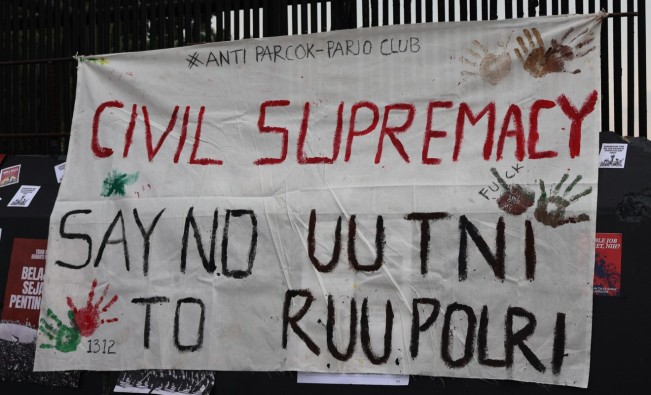 #ANTI PARCOK-PARJO CLUB
CIVIL SUPREMACY
FUCK
SAY NO UU TNI
TO RUU POLRI
1312